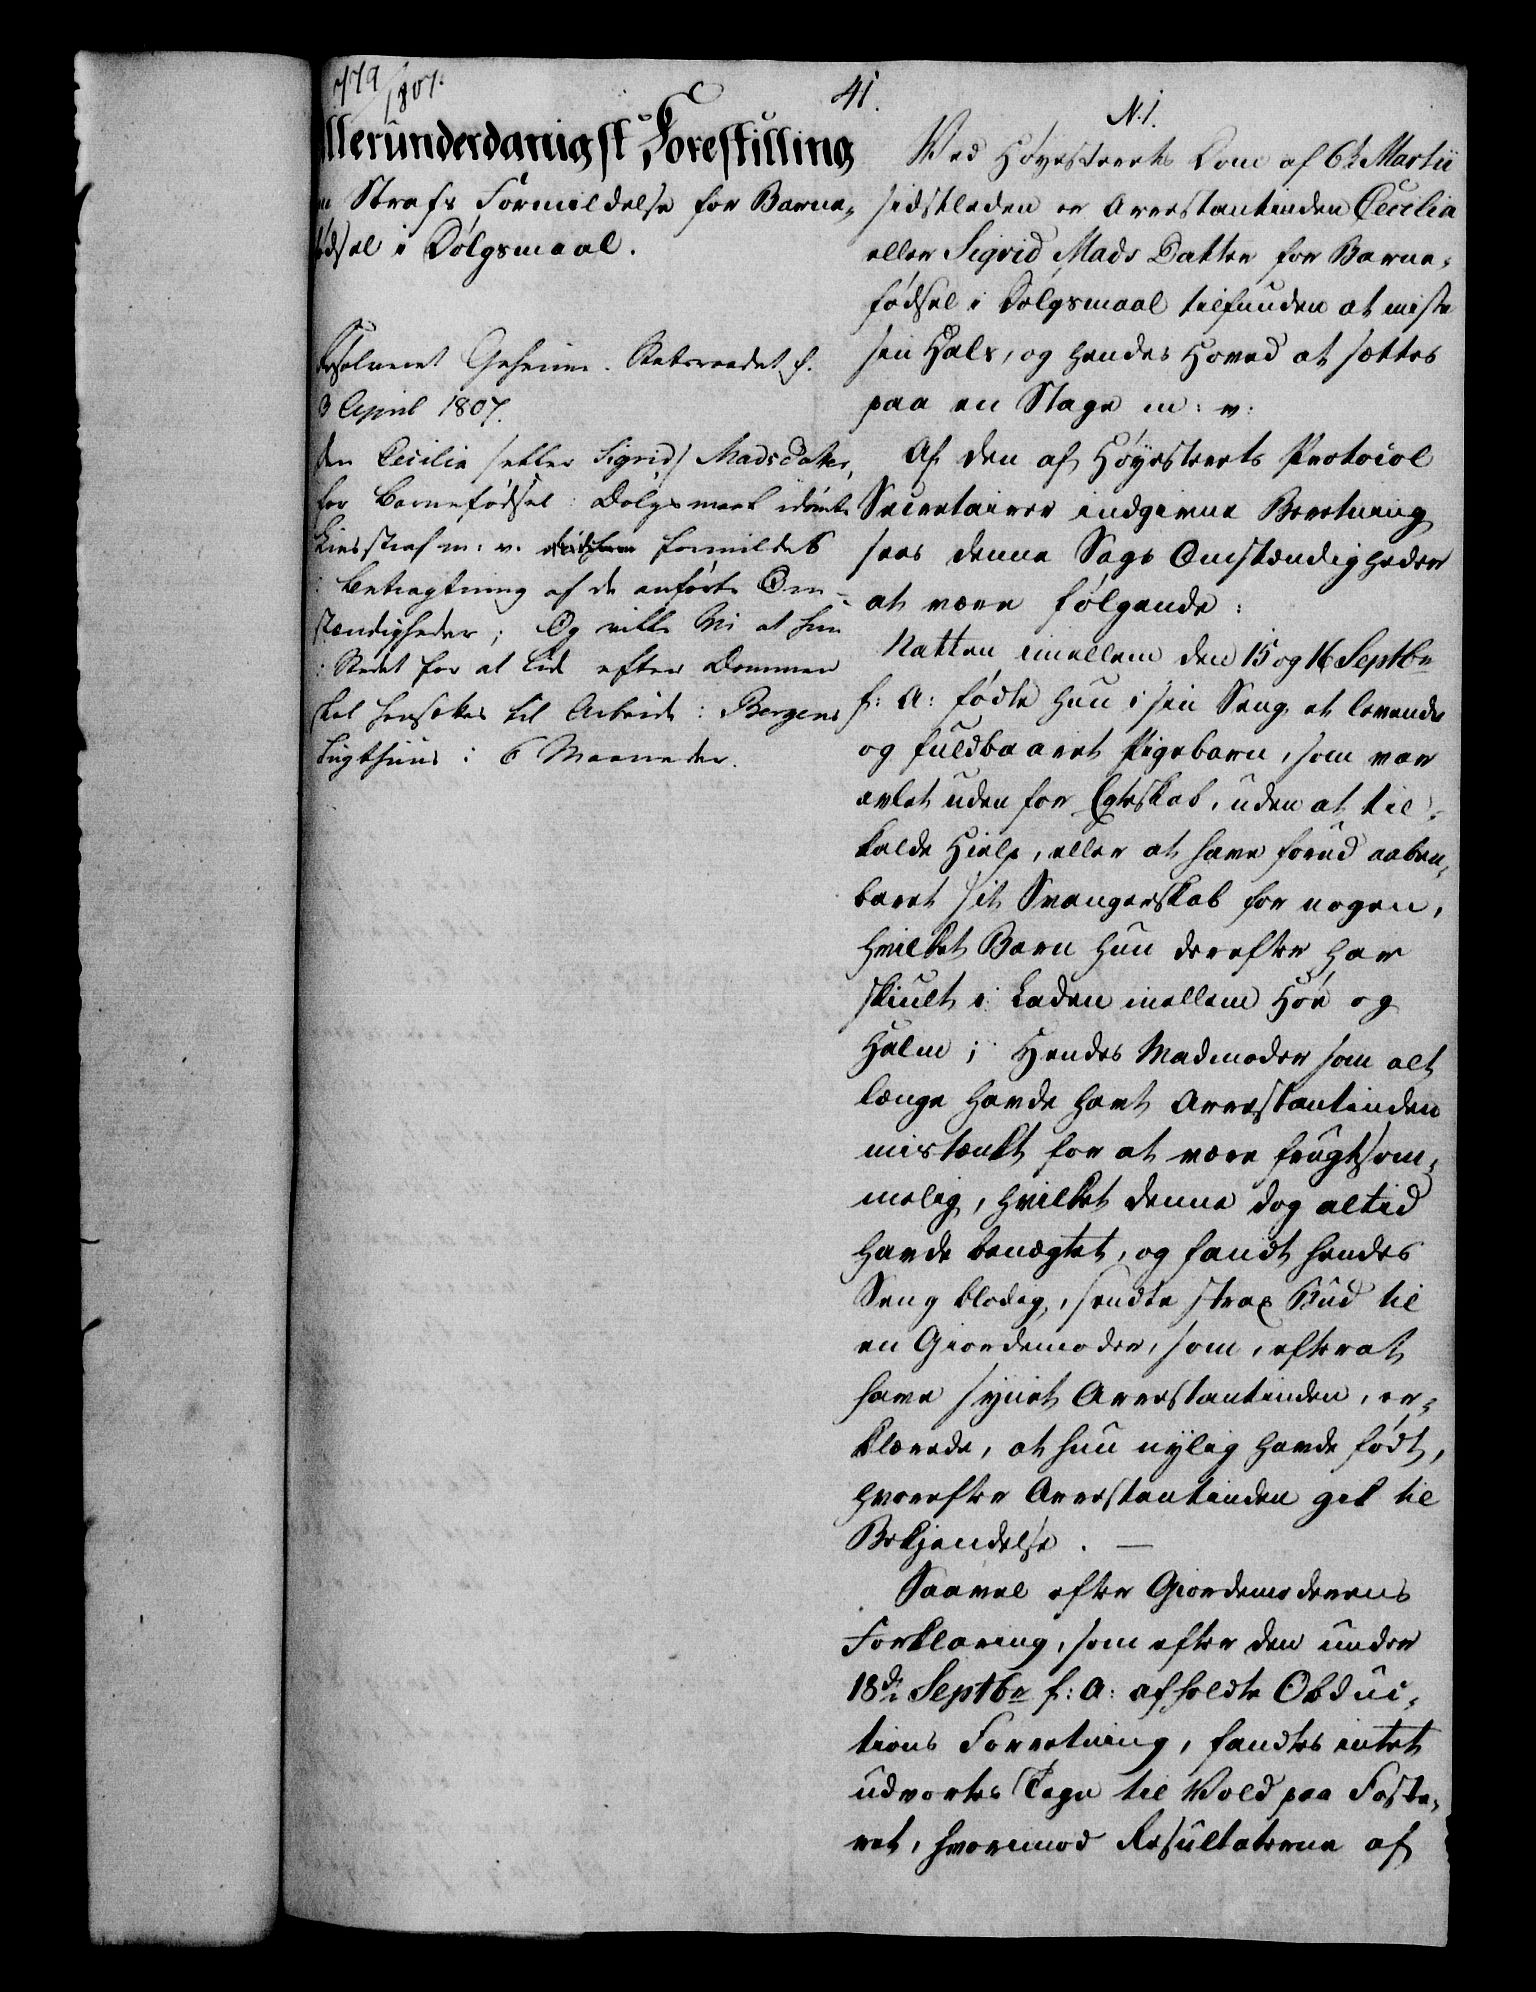 779/1807.
41.
llerunderdanigst Forestilling
Strafs Formildelse for Barne-
ødsel i Dølgsmaal.
Resolveret Geheime-Statsraadet d.
3 April 1807.
Den Cecilia /eller Sigrid/ Madsdatter,
for Barnefødsel i Dølgsmaal idømte
Livsstraf m: v. formildes
i Betragtning af de anførte Om-
stændigheder; Og ville Vi at hun
i Stedet for at lide efter Dommen
skal hensættes til Arbeide i Bergens
Tugthuus i 6 Maaneder.
N. 1.
Ved Høyesterets Dom af 6te Martii
sidstleden er Arrestantinden Cecilia
eller Sigrid Mads Datter for Barne-
fødsel i Dølgsmaal tilfunden at miste
sin Hals, og hendes Hoved at sættes
paa en Stage m: v:
Af den af Høyesterets Protocol
Secretairer indgivne Beretning
sees denne Sags Omstændigheder
at være følgende:
Natten imellem den 15 og 16 Septbr
f: A: fødte hun i sin Seng et levende
og fuldbaaret Pigebarn, som var
avlet uden for Egteskab, uden at til-
kalde Hielp, eller at have forud aaben-
baret sit Svangerskab for nogen,
hvilket Barn hun derefter har
skiult i Laden imellem Høe og
Halm; Hendes Madmoder som alt
længe havde havt Arrestantinden
mistænkt for at være frugtsom-
melig, hvilket denne dog altid
havde benægtet, og fandt hendes
Seng blodig, sendte strax Bud til
en Giordemoder, som, efter at
have synet Arrestantinden, er-
klærede, at hun nylig havde født,
hvorefter Arrestantinden gik til
Bekjendelse. —
Saavel efter Giordemoderens
Forklaring, som efter den under
18de Septbr f: A: afholdte Obduc-
tions Forretning, fandtes intet
udvortes Tegn til Vold paa Foste-
ret, hvorimod Resultaterne af